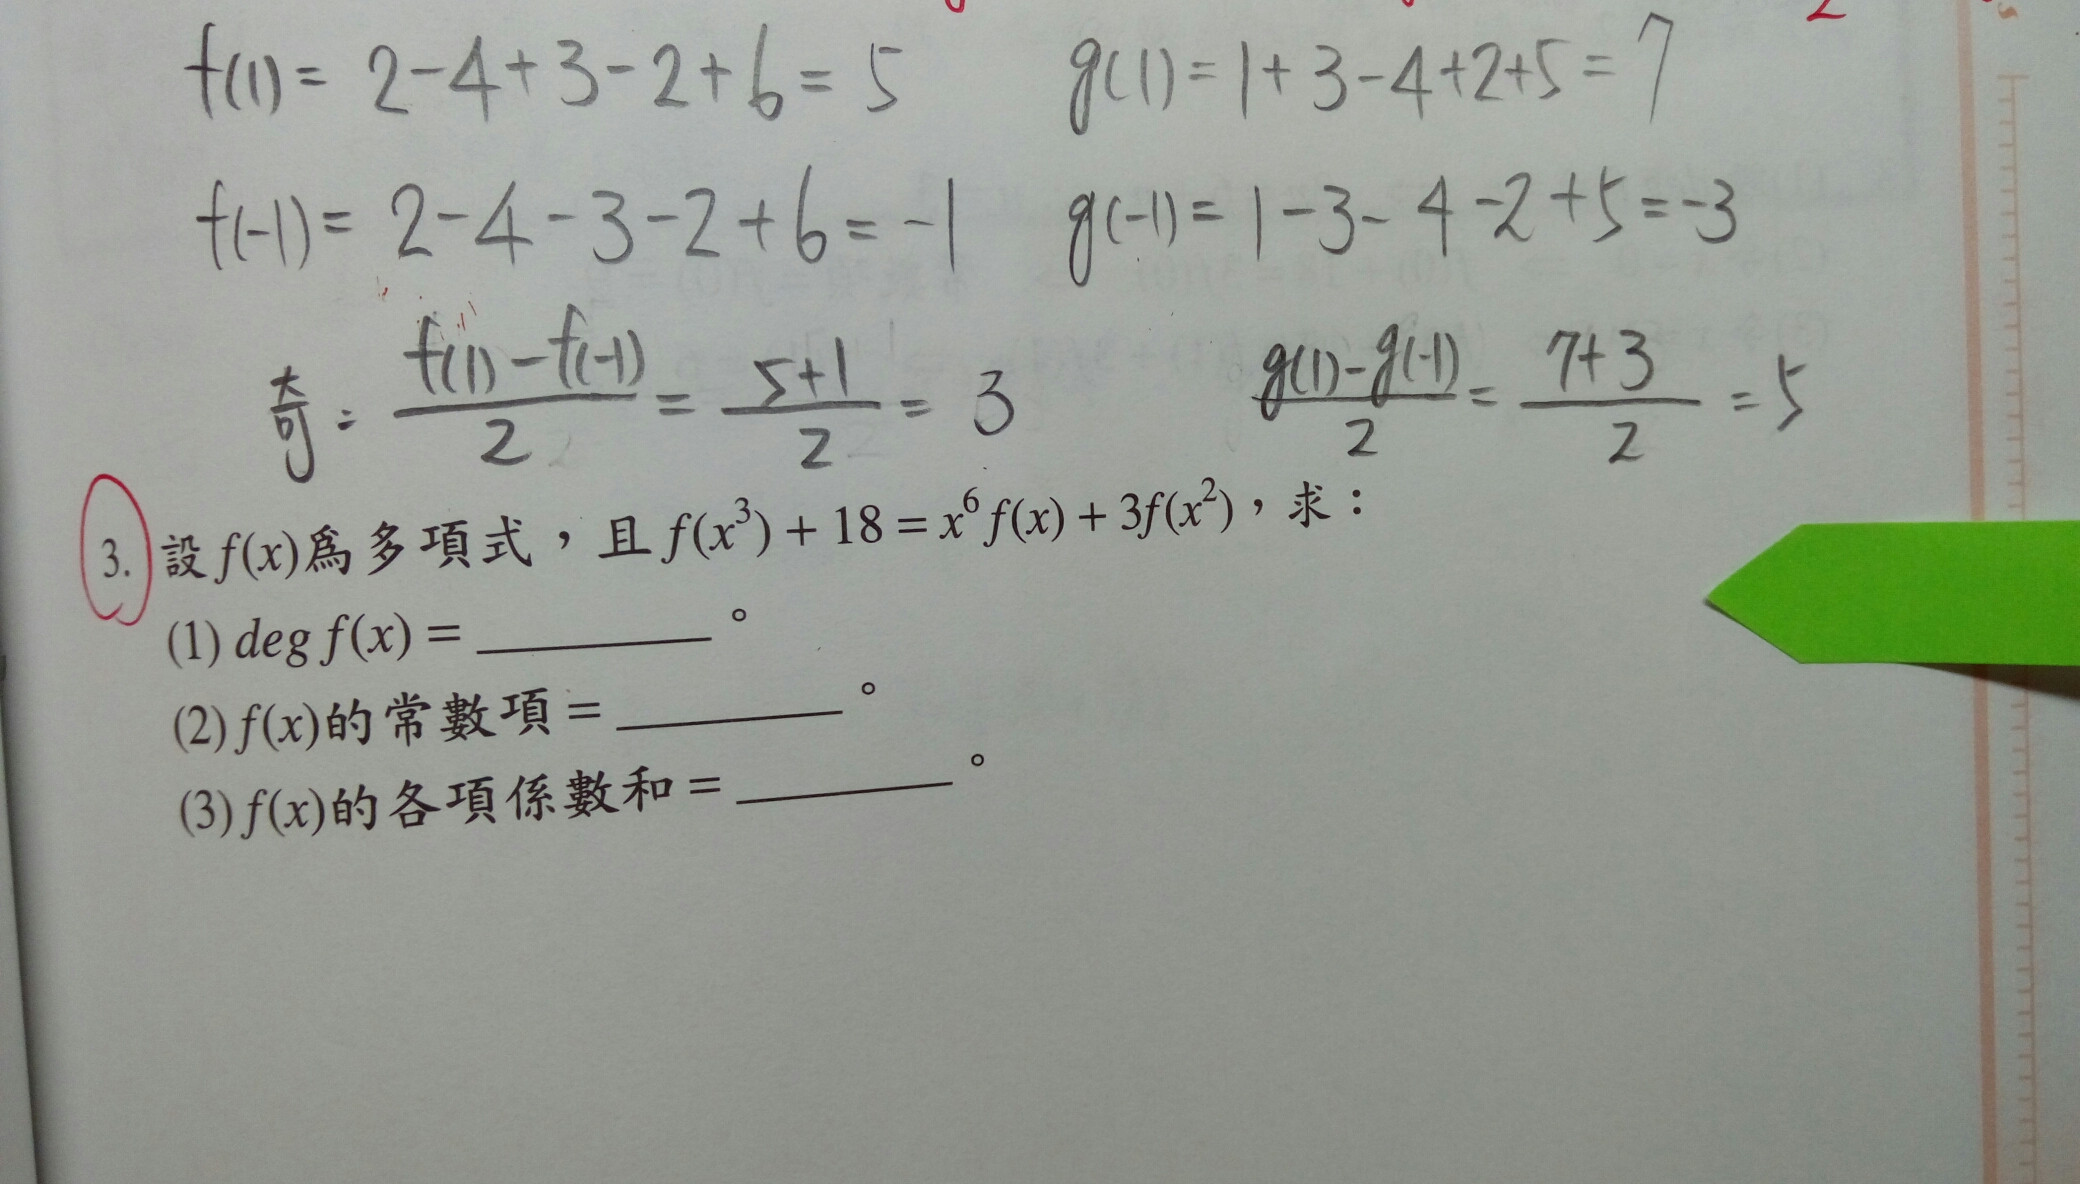 f(1) = 2-4+3-2+6 = 5 g(1) = 1+3-4+2+5 = 7
f(-1) = 2-4-3-2+6 = -1 g(-1) = 1-3-4-2+5 = -3
奇: \frac{f(1)-f(-1)}{2} = \frac{5+1}{2} = 3 \frac{g(1)-g(-1)}{2} = \frac{7+3}{2} = 5
3. 設 f(x)為多項式，且 f(x³) + 18 = x⁶f(x) + 3f(x²)，求：
(1) deg f(x) = ________。
(2) f(x)的常數項 = ________。
(3) f(x)的各項係數和 = ________。